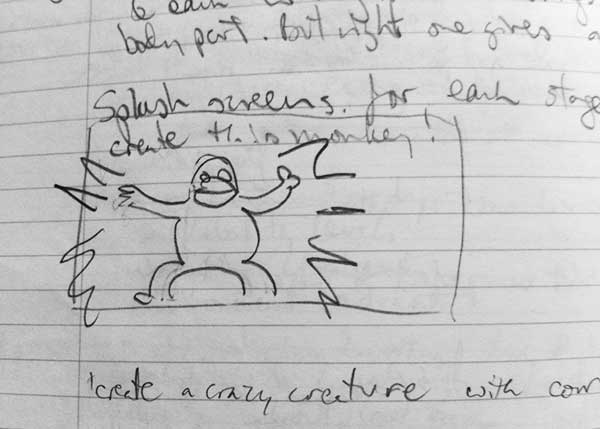 & each
body part. But right one gives a
Splash screens. for each stage
create this monkey!
'create a crazy creature with com